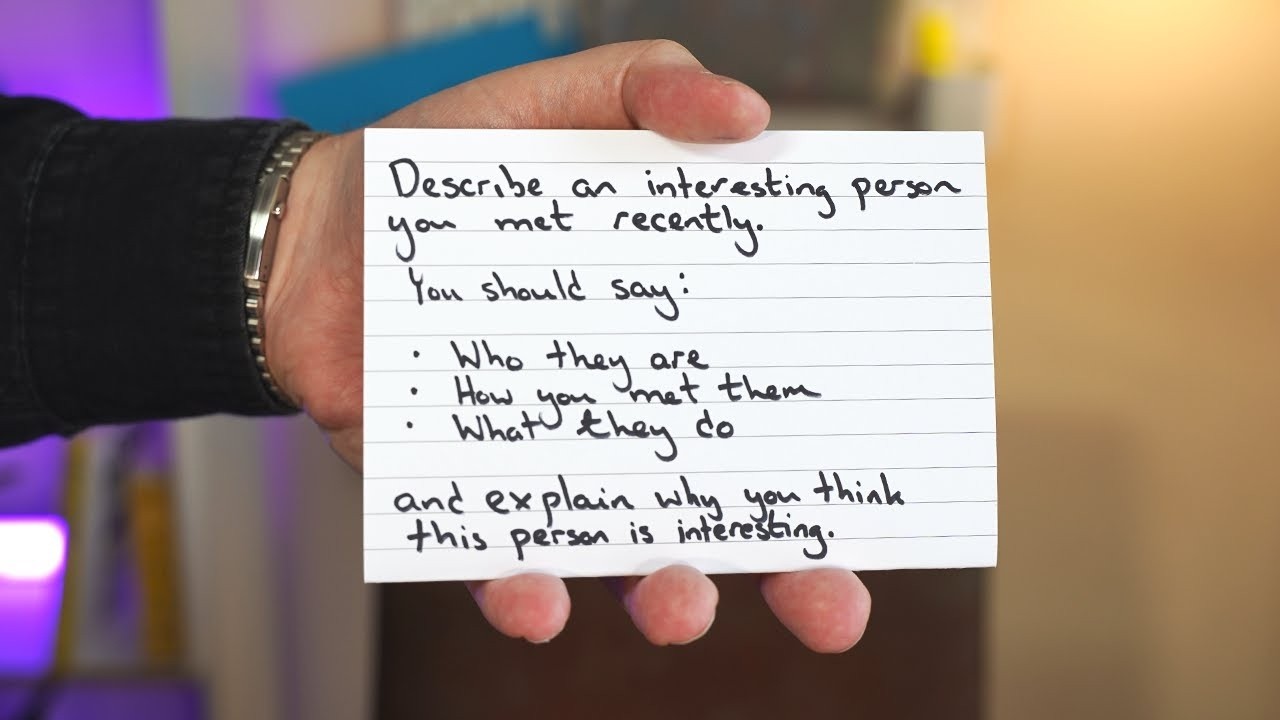 Describe an interesting person
you met recently.
You should say:
• Who they are
• How you met them
• What they do
and explain why you think
this person is interesting.